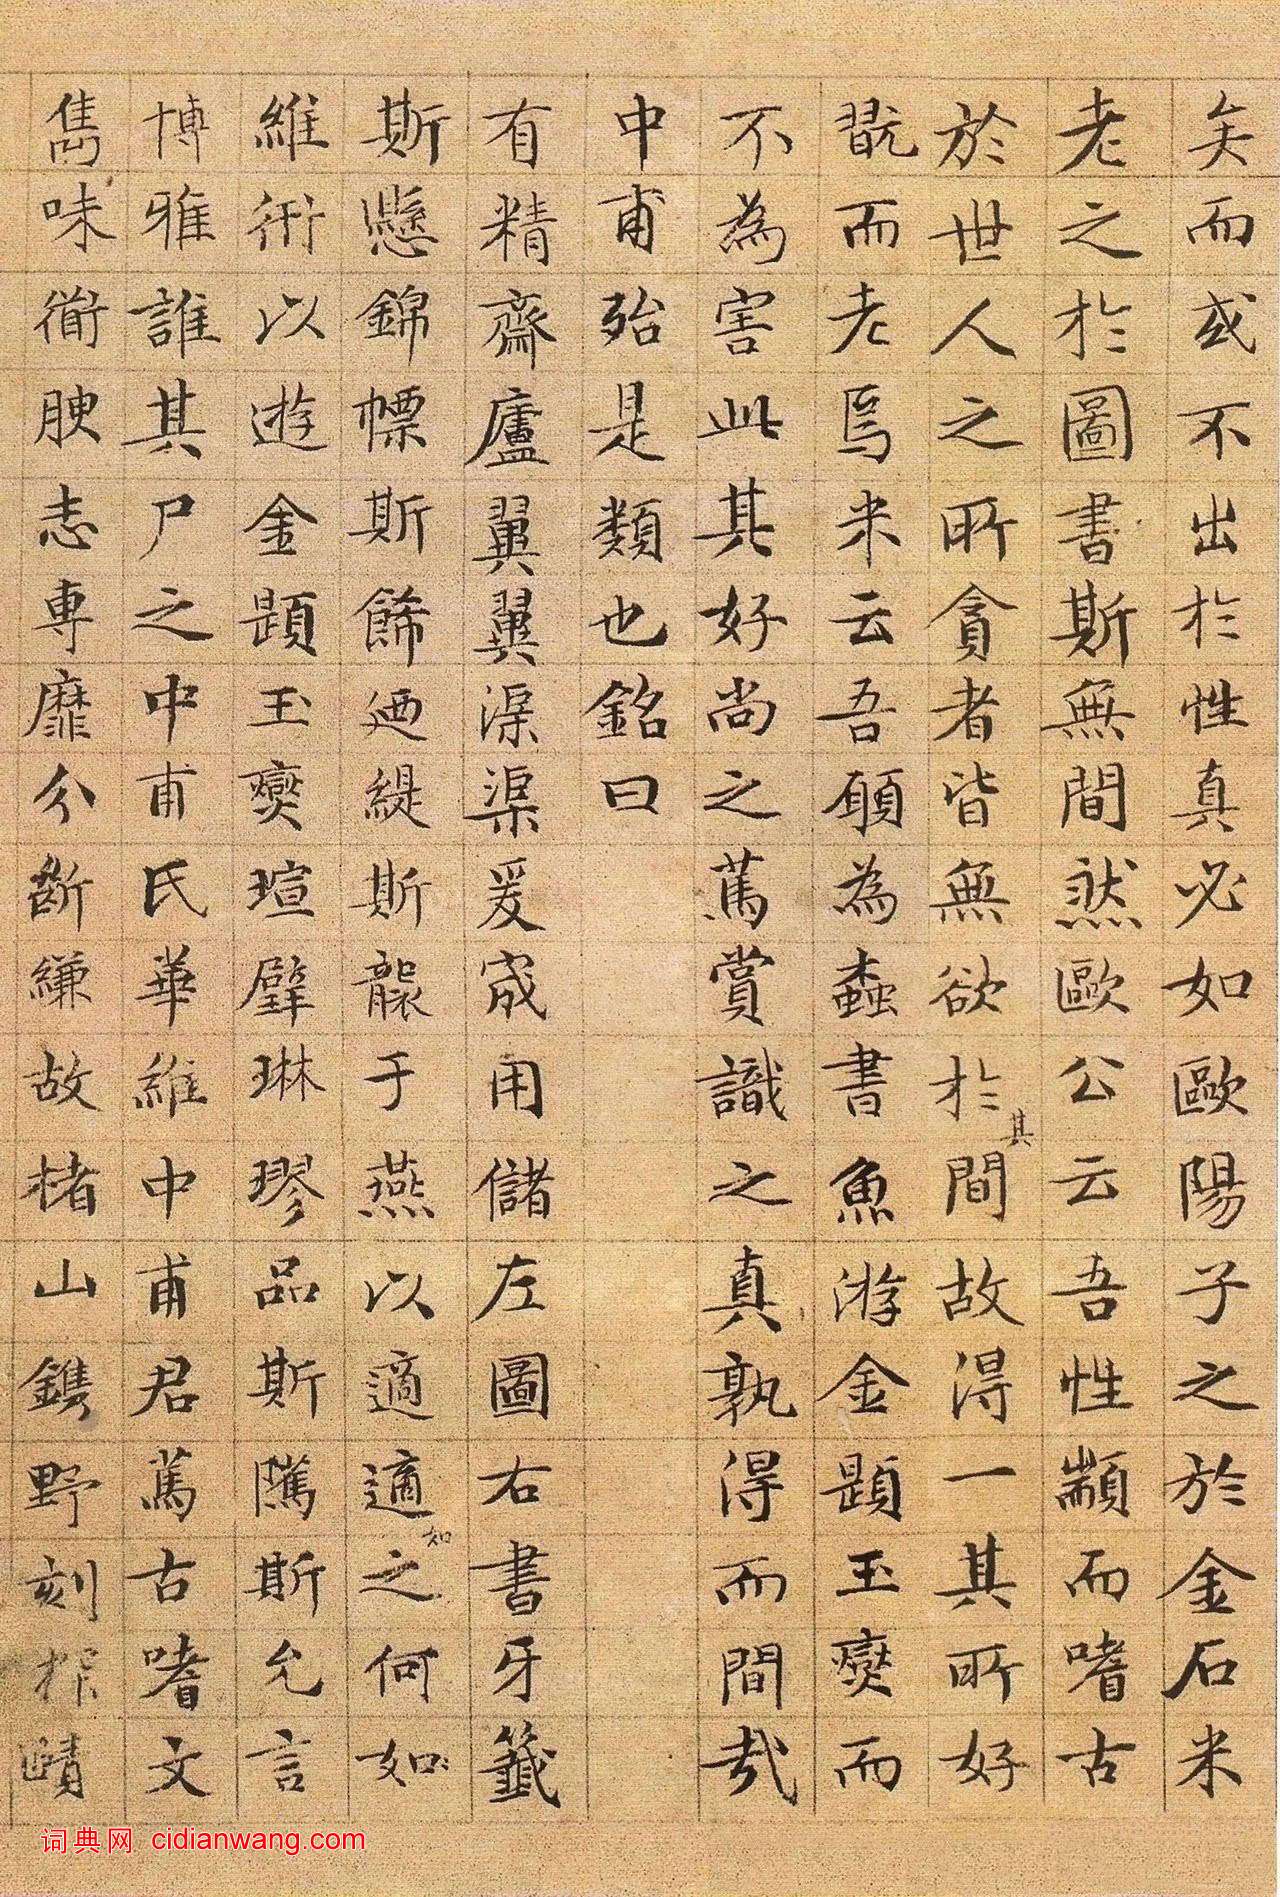 矣而或不出於性真必如歐陽子之於金石米
老之於圖書斯無間然歐公云吾性顓而嗜古
於世人之所貪者皆無欲於其間故得一其所好
翫而老焉米云吾願為蠧書魚游金題玉躞而
不為害此其好尚之篤賞識之真孰得而間哉
中甫殆是類也銘曰
有精齋廬翼翼渠渠爰宬用儲左圖右書牙籤
斯懸錦幖斯飾迺緹斯襲于燕以適適之如何如
維衎以遊金題玉躞瑄璧琳璆品斯隲斯允言
博雅誰其尸之中甫氏華維中甫君篤古嗜文
雋味道腴志專靡分斷縑故楮山鐫野刻
詞典网 cidianwang.com